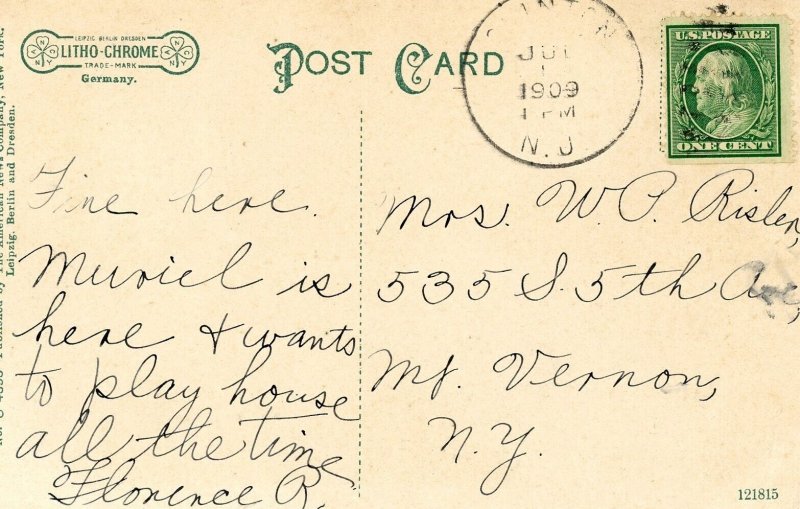 LEIPZIG BERLIN DRESDEN
LITHO-CHROME
TRADE-MARK
Germany.
POST CARD
CLINTON
JUL
1
1909
1 PM
N.J
U.S. POSTAGE
ONE CENT
Published by The American News Company, New York,
Leipzig, Berlin and Dresden.
Fine here.
Muriel is
here & wants
to play house
all the time
Florence R.
Mrs. W. P. Risler,
535 S. 5th Av,
Mt. Vernon,
N.Y.
121815